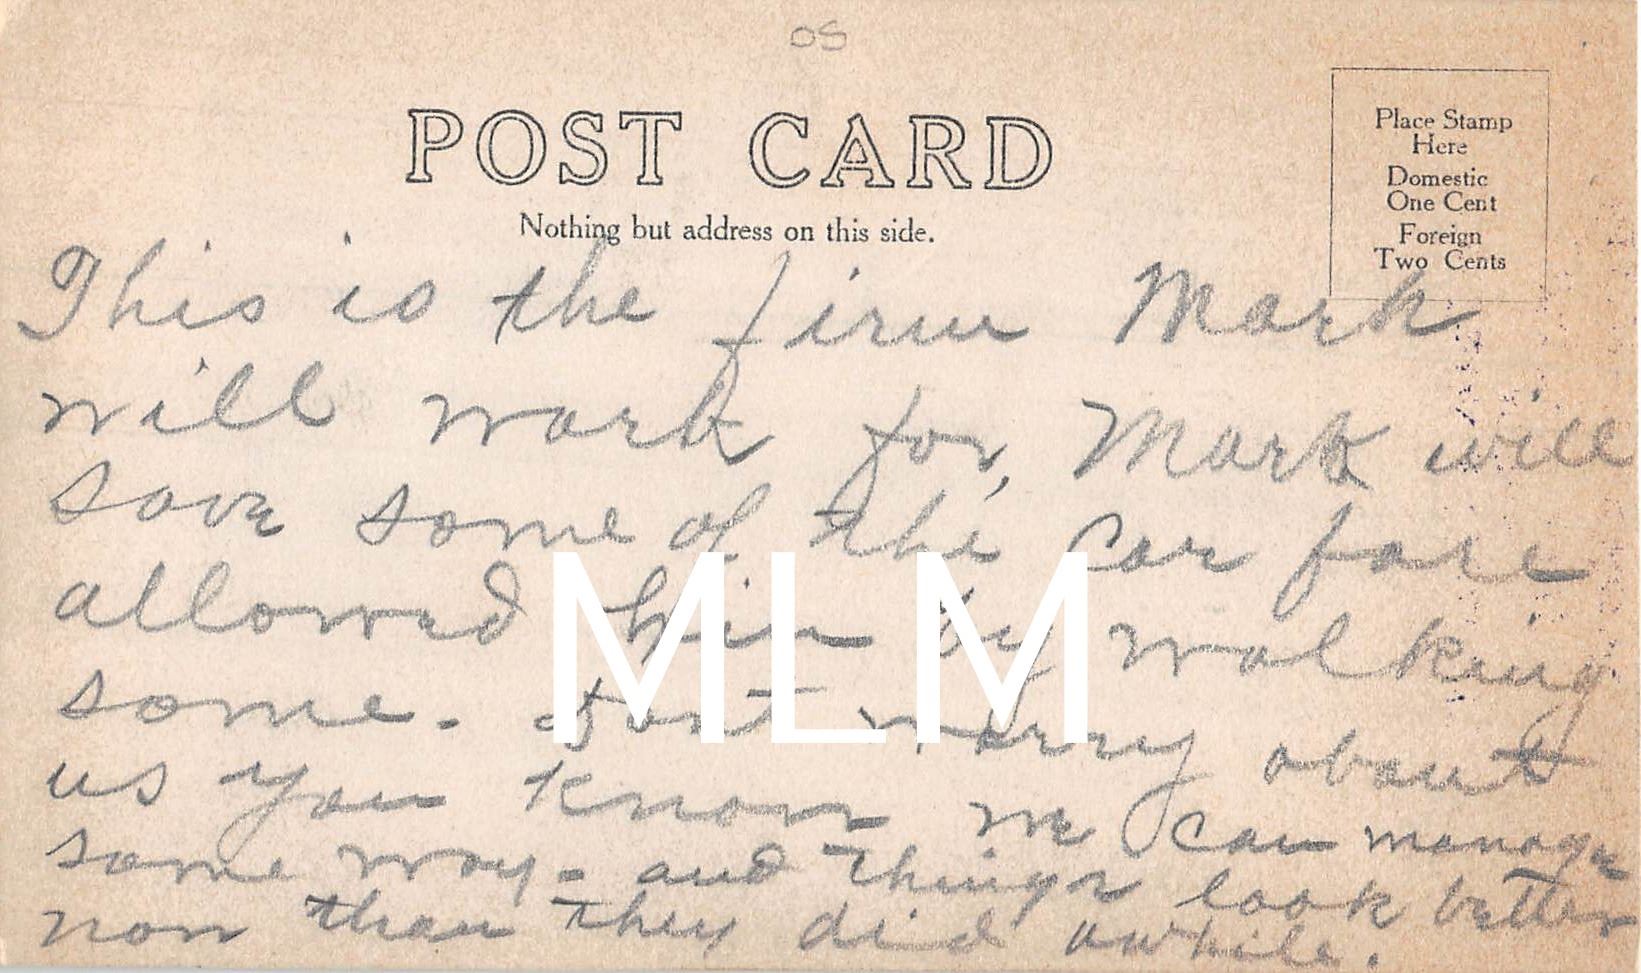 OS
POST CARD
Nothing but address on this side.
Place Stamp
Here
Domestic
One Cent
Foreign
Two Cents
This is the firm Mark
will work for, Mark will
save some of the car fare
allowed him by walking
some. dont worry about
us you know we can manage
some way - and things look better
now than they did awhile.
MLM